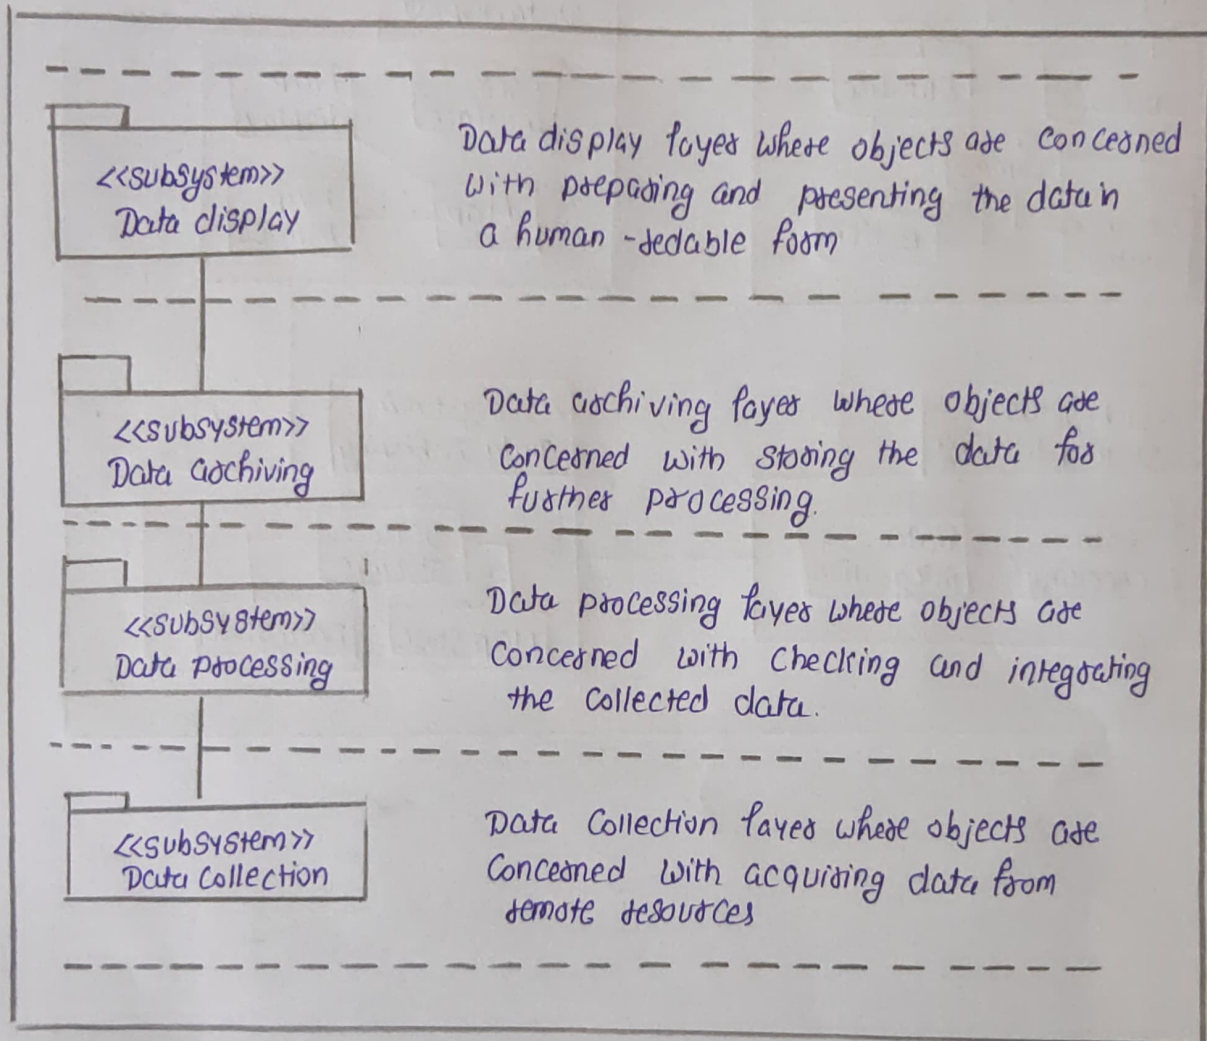 <<subsystem>>
Data display
Data display layer where objects are concerned
with preparing and presenting the data in
a human-redable form
<<subsystem>>
Data archiving
Data archiving layer where objects are
concerned with storing the data for
further processing.
<<subsystem>>
Data processing
Data processing layer where objects are
concerned with checking and integrating
the collected data.
<<subsystem>>
Data collection
Data Collection layer where objects are
concerned with acquiring data from
remote resources